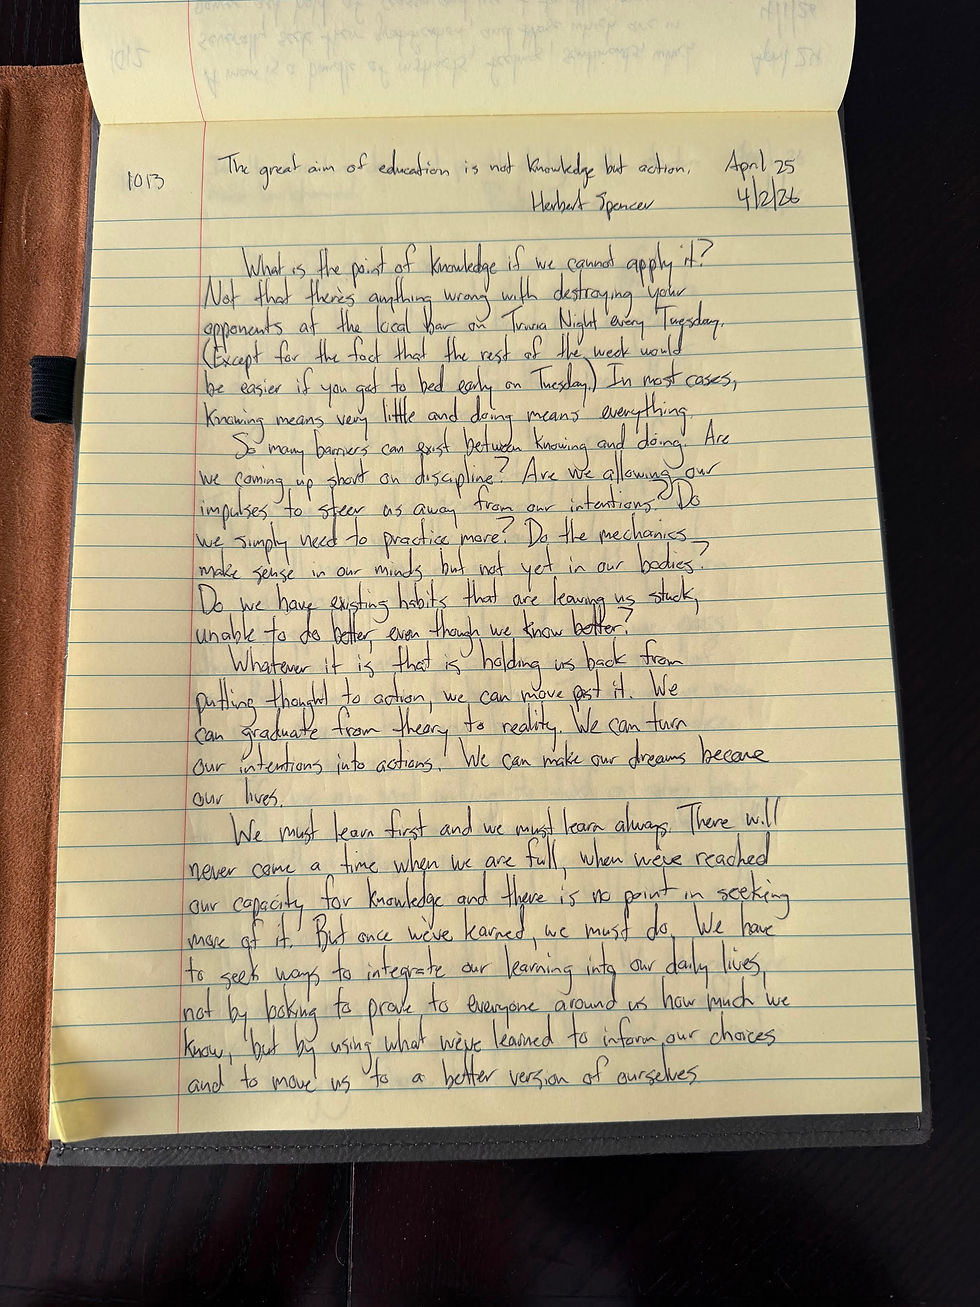 1013
The great aim of education is not knowledge but action. April 25
Herbert Spencer 4/2/26
What is the point of knowledge if we cannot apply it?
Not that there's anything wrong with destroying your
opponents at the local bar on Trivia Night every Tuesday.
(Except for the fact that the rest of the week would
be easier if you got to bed early on Tuesday.) In most cases,
knowing means very little and doing means everything.
So many barriers can exist between knowing and doing. Are
we coming up short on discipline? Are we allowing our
impulses to steer us away from our intentions? Do
we simply need to practice more? Do the mechanics
make sense in our minds, but not yet in our bodies?
Do we have existing habits that are leaving us stuck,
unable to do better, even though we know better?
Whatever it is that is holding us back from
putting thought to action, we can move past it. We
can graduate from theory to reality. We can turn
our intentions into actions. We can make our dreams become
our lives.
We must learn first and we must learn always. There will
never come a time when we are full, when we've reached
our capacity for knowledge and there is no point in seeking
more of it. But once we've learned, we must do. We have
to seek ways to integrate our learning into our daily lives,
not by looking to prove to everyone around us how much we
know, but by using what we've learned to inform our choices
and to move us to a better version of ourselves